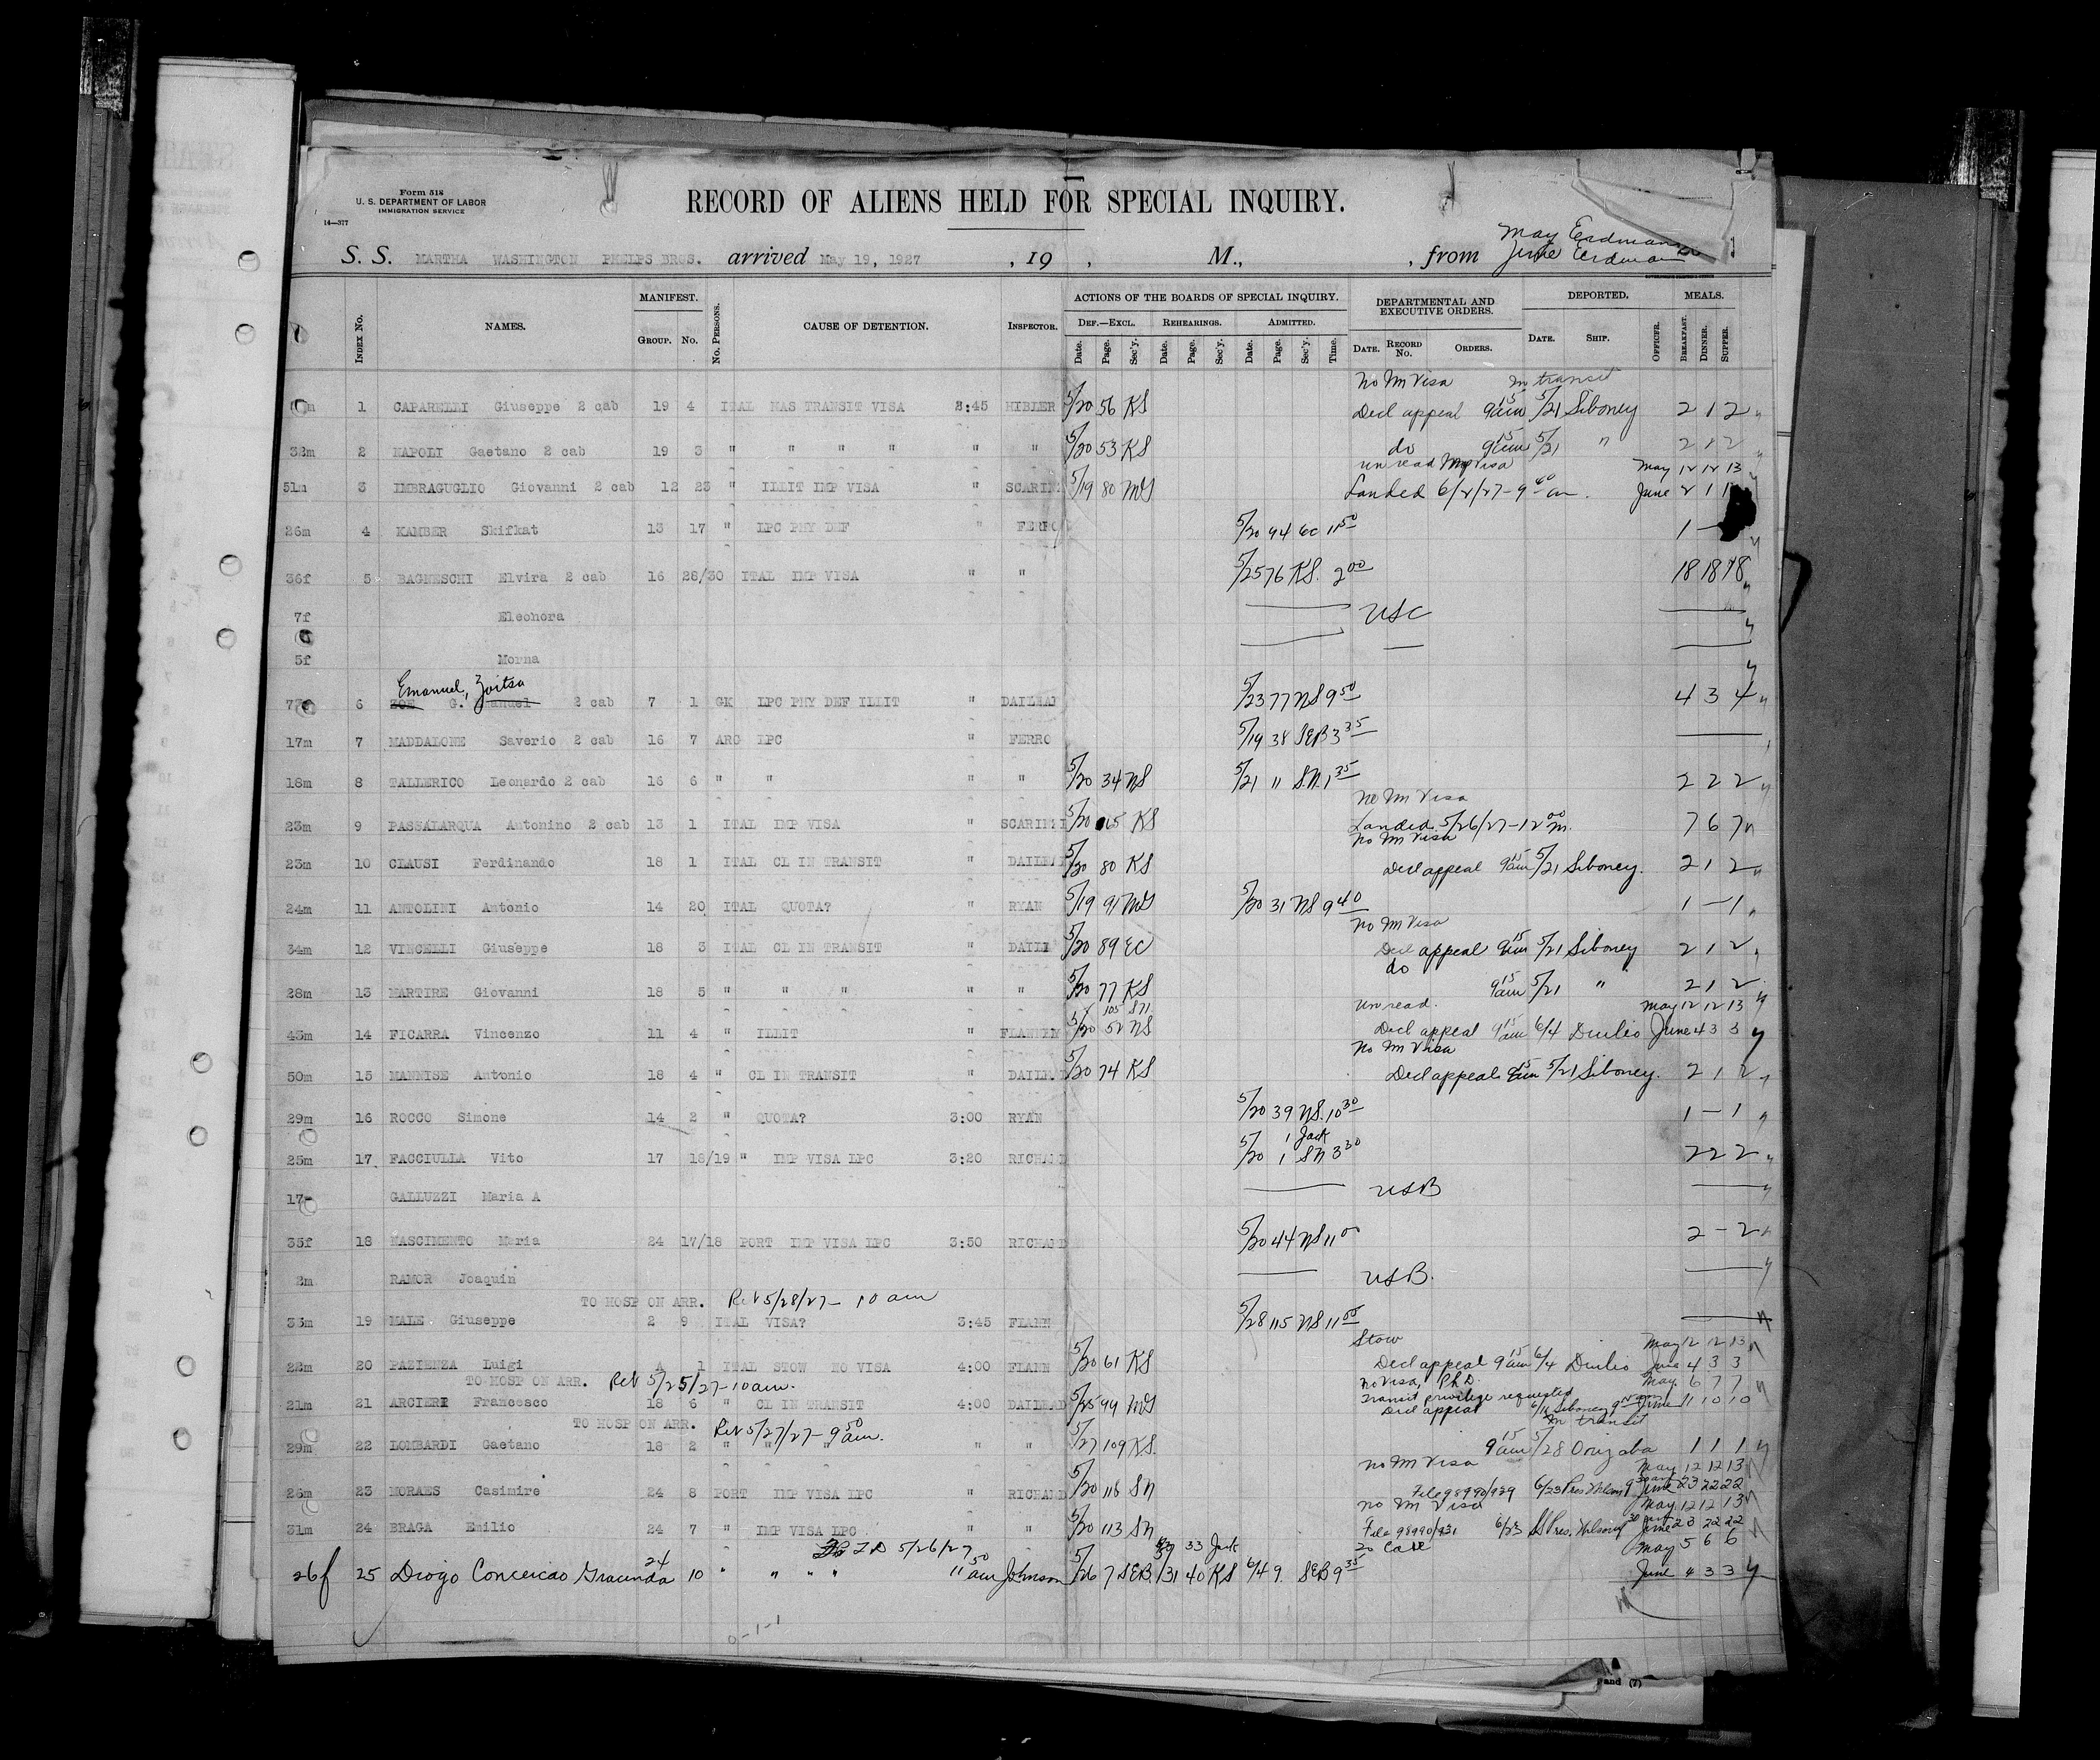 Form 518
U. S. DEPARTMENT OF LABOR
IMMIGRATION SERVICE
14—377
RECORD OF ALIENS HELD FOR SPECIAL INQUIRY.
May Erdman
June Erdman
S. S. MARTHA WASHINGTON PHELPS BROS. arrived May 19, 1927 , 19 , M., , from
INDEX No. NAMES. MANIFEST. GROUP. No. No. PERSONS. CAUSE OF DETENTION. INSPECTOR. ACTIONS OF THE BOARDS OF SPECIAL INQUIRY. DEF.—EXCL. Date. Page. Sec'y. REHEARINGS. Date. Page. Sec'y. ADMITTED. Date. Page. Sec'y. Time. DEPARTMENTAL AND EXECUTIVE ORDERS. DATE. RECORD No. ORDERS. DEPORTED. DATE. SHIP. OFFICER. MEALS. BREAKFAST. DINNER. SUPPER.
No Im Visa In transit
1 CAPARELLI Giuseppe 2 cab 19 4 ITAL HAS TRANSIT VISA 2:45 HIBLER 5/20 56 KS Decl appeal 9 15 am 5/21 Siboney 2 1 2
32m 2 NAPOLI Gaetano 2 cab 19 3 " " " " " " 5/20 53 KS do 9 15 am 5/21 " 2 1 2
un read Imp Visa May 12 12 13
51m 3 IMBRAGUGLIO Giovanni 2 cab 12 23 " ILLIT IMP VISA " 5/19 80 MS Landed 6/2/27-9 40 am. June 2 1 1
26m 4 KAMBER Skifkat 13 17 " LPC PHY DEF " FERRO 5/20 94 EC 11 50 1 —
36f 5 BAGNESCHI Elvira 2 cab 16 28/30 ITAL IMP VISA " " 5/25 76 KS. 2 00 18 18 18
7f Eleonora USC
5f Morna
Emanuel, Zoitsa
6 ZOE G. Manuel 2 cab 7 1 GK LPC PHY DEF ILLIT " 5/23 77 NS 9 50 4 3 4
17m 7 MADDALONE Saverio 2 cab 16 7 ARG LPC " FERRO 5/19 38 SEB 3 35
18m 8 TALLERICO Leonardo 2 cab 16 6 " " " " 5/20 34 NS 5/21 11 S.N. 1 35 2 2 2
No Im Visa
23m 9 PASSALARQUA Antonino 2 cab 13 1 ITAL IMP VISA " 5/20 KS Landed 5/26/27-12 00 m. 7 6 7
No Im Visa
23m 10 CLAUSI Ferdinando 18 1 ITAL CL IN TRANSIT " 5/20 80 KS Decl appeal 9 15 am 5/21 Siboney. 2 1 2
24m 11 ANTOLINI Antonio 14 20 ITAL QUOTA? " RYAN 5/19 91 MS 5/20 31 NS 9 40 1 — 1
No Im Visa
34m 12 VINCELLI Giuseppe 18 3 ITAL CL IN TRANSIT " 5/20 89 EC Decl appeal 9 15 am 5/21 Siboney 2 1 2
do
28m 13 MARTIRE Giovanni 18 5 " " " " " 5/20 77 KS 9 15 am 5/21 " 2 1 2
105 SN un read. May 12 12 13
43m 14 FICARRA Vincenzo 11 4 " ILLIT " 5/20 52 NS Decl appeal 9 15 am 6/4 Duilio June 4 3 3
No Im Visa
50m 15 MANNISE Antonio 18 4 " CL IN TRANSIT " 5/20 74 KS Decl appeal 9 15 am 5/21 Siboney. 2 1 2
29m 16 ROCCO Simone 14 2 " QUOTA? 3:00 RYAN 5/20 39 NS. 10 30 1 — 1
1 Jack
25m 17 FACCIULLA Vito 17 18/19 " IMP VISA LPC 3:20 RICHARD 5/20 1 SN 3 30 2 2 2
17 GALLUZZI Maria A USB
35f 18 NASCIMENTO Maria 24 17/18 PORT IMP VISA LPC 3:50 RICHARD 5/20 44 NS 11 00 2 – 2
2m RAMOR Joaquin USB.
TO HOSP ON ARR. Ret 5/28/27 – 10 am
33m 19 MALE Giuseppe 2 9 ITAL VISA? 3:45 FLANN 5/28 115 NS 11 00
Stow May 12 12 13
22m 20 PAZIENZA Luigi 4 1 ITAL STOW NO VISA 4:00 FLANN 5/20 61 KS Decl appeal 9 15 am 6/4 Duilio June 4 3 3
TO HOSP ON ARR. Ret 5/25/27-10 am. No Visa, P.L.D. May 6 7 7
Transit privilege requested
21m 21 ARCIERI Francesco 18 6 " CL IN TRANSIT 4:00 DAILEAD 5/25 99 MS Decl appeal 6/11 Siboney June 11 10 10
TO HOSP ON ARR. Ret 5/27/27-9 50 am. In transit
29m 22 LOMBARDI Gaetano 18 2 " " " " " 5/27 109 KS. 9 15 am 5/28 Orizaba 1 1 1
No Im Visa May 12 12 13
26m 23 MORAES Casimire 24 8 PORT IMP VISA LPC " RICHARD 5/20 116 SN File 98990/929 6/23 Pres Wilson June 23 22 22
No Im Visa May 12 12 13
31m 24 BRAGA Emilio 24 7 " IMP VISA LPC " " 5/20 113 SN File 98990/931 6/23 SS Pres. Wilson June 23 22 22
T D 5/26/27 33 Jack May 5 6 6
26f 25 Diogo Conceicao Gracinda 24 10 " " " " 11 50 am Johnson 5/26 7 SEB 5/31 40 KS 6/4 9. SEB 9 35 June 4 3 3
0-1-1
and (7)